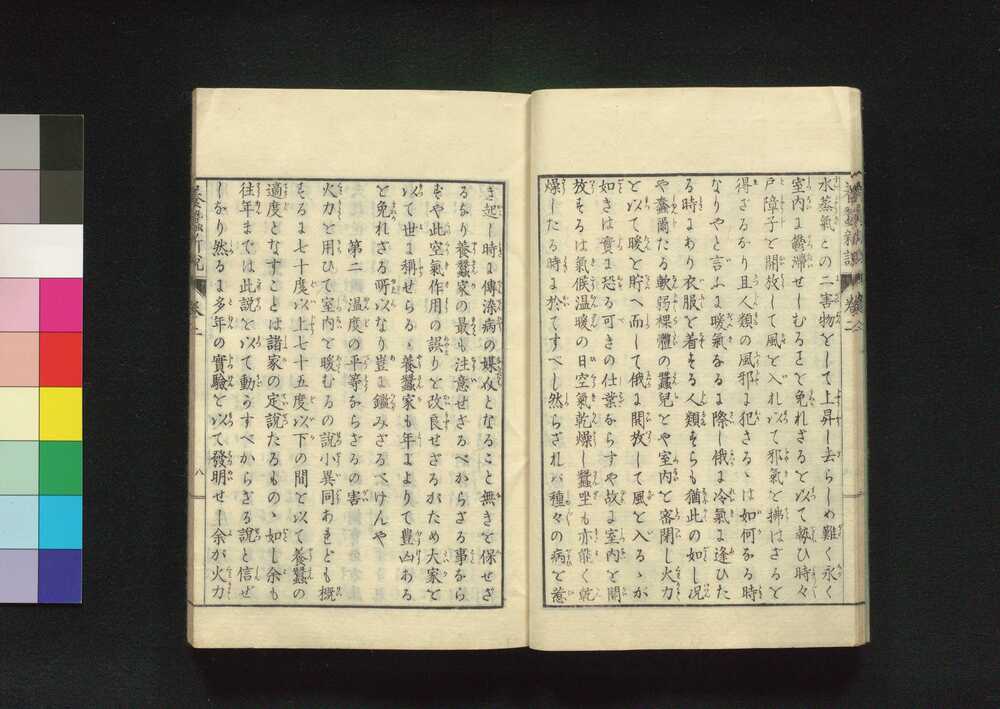 水蒸氣との二害物をして上昇し去らしめ難く永く
室内に欝滯せしむることを免れざるを以て勢ひ時々
戸障子を開放して風を入れ以て邪氣を拂はざるを
得ざるなり且人類の風邪に犯さるゝは如何なる時
なりやと言ふに暖氣なるに際し俄に冷氣に逢ひた
る時にあり衣服を着する人類すらも猶此の如し况
や蠢爾たる軟弱裸軆の蠶兒をや室内を密閉し火力
を以て暖を貯へ而して俄に開放して風を入るゝが
如きは實に恐る可きの仕葉ならずや故に室内を開
放するは氣候温暖の日空氣乾燥し蠶坐も亦能く乾
燥したる時に於てすべし然らざれバ種々の病を惹
き起し時に傳染病の媒介となること無きを保せざ
るなり養蠶家の最も注意せざるべからざる事なら
ずや此空氣作用の誤りを改良せざるがため大家を
以て世に稱せらるゝ養蠶家も年によりて豊凶ある
を免れざる所以なり豈に鑑みざるべけんや
第二 温度の平等ならざるの害
火力を用ひて室内を暖むるの說小異同あれども概
するに七十度以上七十五度以下の間を以て養蠶の
適度となすことは諸家の定說たるものゝ如し余も
往年までは此說を以て動かすべからざる說と信ぜ
しなり然るに多年の實驗を以て發明せし余が火力
卷二
八